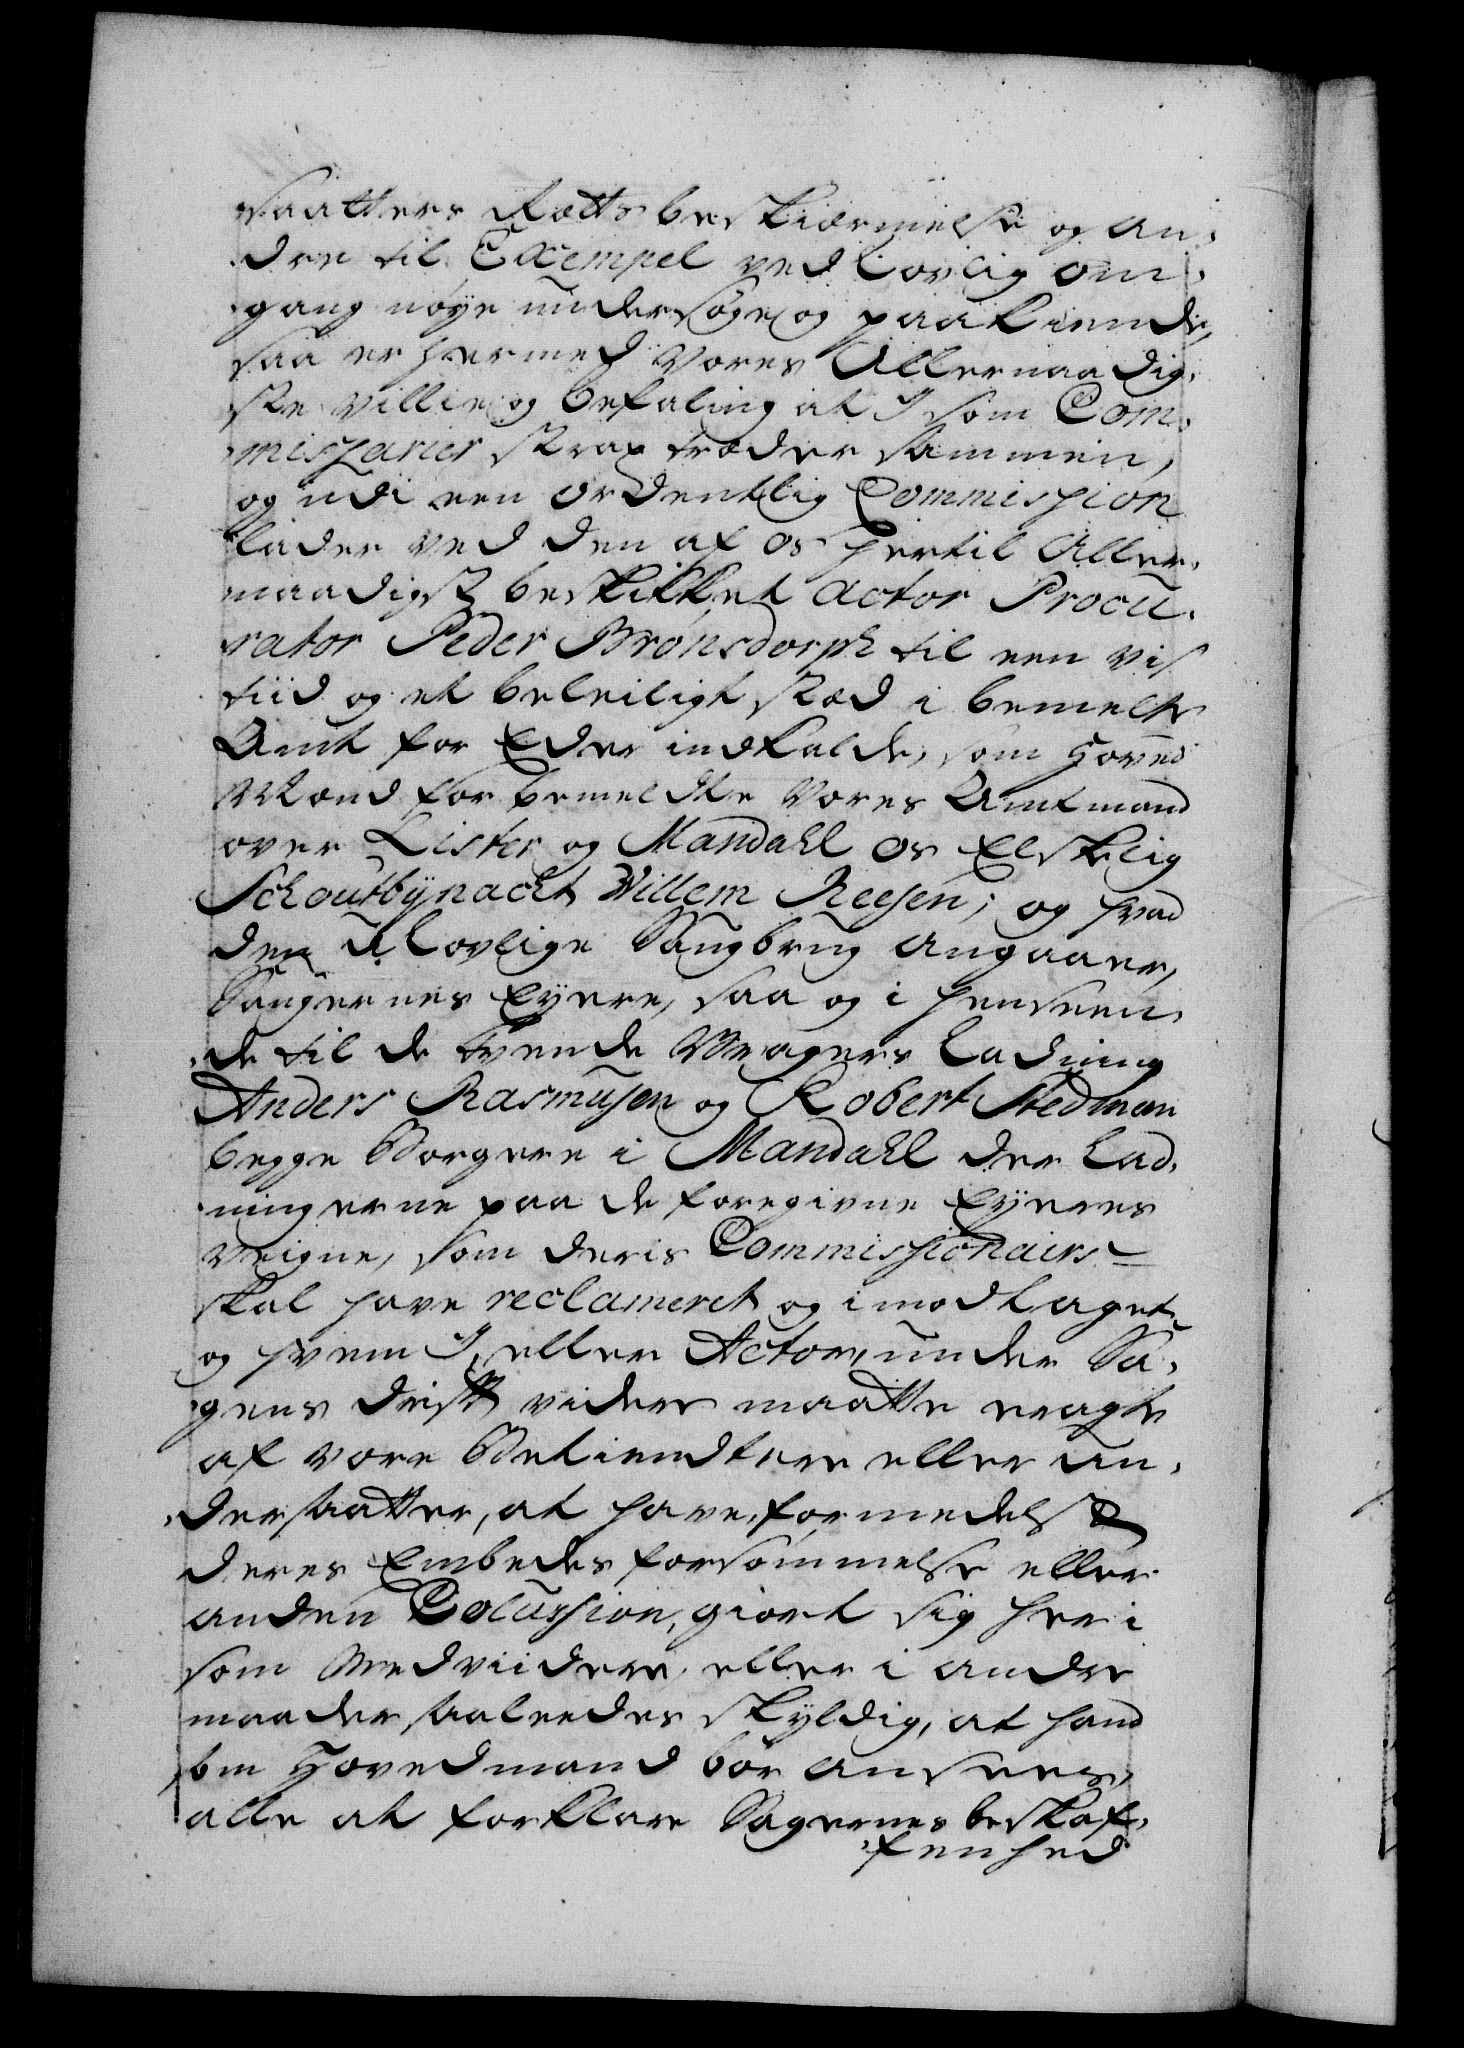 saatters Rætts beskiærmelse og an,
dre til Exempel ved Lovlig om,
gang nøye undersøge og paakiende,
saa er hermed Vores Allernaadig,
ste Villie og befaling at I som Com,
misßarier strax træder sammen,
og udi een ordentlig Commisßion
lader ved den af os hertil Aller,
naadigst beskikket Actor Procu,
rator Peder Brønsdorph til een vis
tiid og et beleiligt stæd i bemelte
Amt for Eder indkalde, som Hoved
Mand for bemeldte Vores Amtmand
over Lister og Mandahl os Elskelig
Schoutbÿnacht Willem Reesen; og hvad
den Ulovlige Saugbrug angaaer,
Saugernes Eÿere, saa og i henseen,
de til de tvende Vragers Ladning
Anders Rasmusen og Robert Stedman
begge Borgere i Mandahl der Lad,
ningerne paa de foregivne Eÿeres
Veigne, som deris Commisßionairs
skal have reclameret og imodtaget,
og hvem I, eller Actor, under Sa,
gens drift videre maatte eragte
af vore Betiendtere eller Un,
dersaatter, at have, formedelst
deres Embedes forsømmelse eller
anden Colusßion, giort sig heri
som Medviidere, eller i andre
maader saaleedes skÿldig, at hand
som Hovedmand bør ansees,
alle at forklare Sagernes beskaf,
fenhed